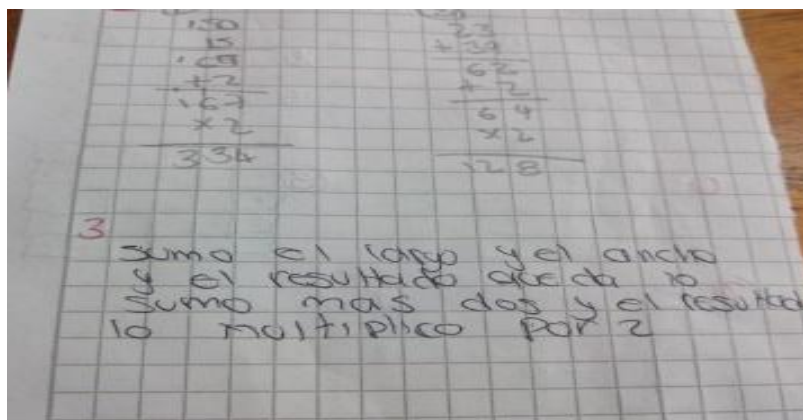 150
15
165
+ 2
167
x 2
334
23
+ 39
62
+ 2
64
x 2
128
3
sumo el largo y el ancho
y el resultado queda lo
sumo mas dos y el resultad
lo moltiplico por 2